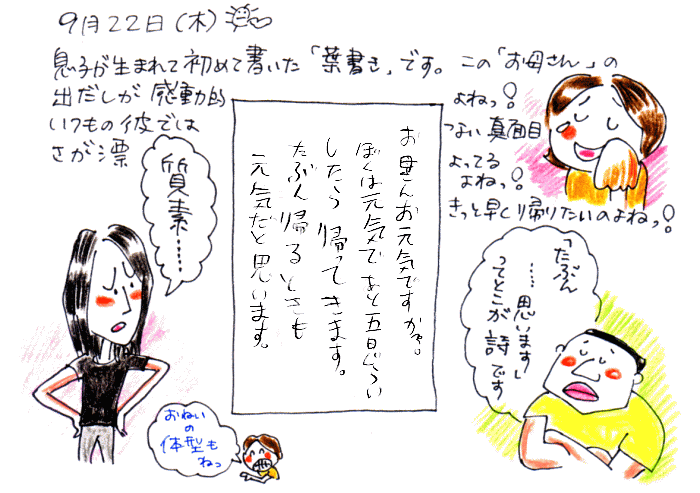 9月22日(木)
息子が生まれて初めて書いた「葉書き」です。この「お母さん」の
出だしが感動的
いつもの彼では
さが漂
よねっ!
つない真面目
よってる
よねっ!
きっと早くり帰りたいのよねっ!
質素……
お母んお元気ですか。
ぼくは元気であと五日ぐらい
したら帰ってきます。
たぶん帰るときも
元気だと思います。
「たぶん
……思います」
ってとこが詩です
おねい
の
体型も
ねっ